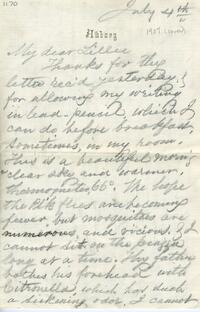 1170
July 4th
Auburg
My dear Lillie
Thanks for the
letter rec'd yesterday, &
for allowing my writing
in lead-pencil, which I
can do before breakfast,
sometimes, in my room.
This is a beautiful morn'g
clear sky and warmer.
thermometer 66°. We hope
the Blk flies are becoming
fewer, but mosquitoes are
numerous, and vicious. & I
cannot sit on the piazza
long at a time. Yr father
bathes his forehead with
Citronella, which has such
a sickening odor. I cannot